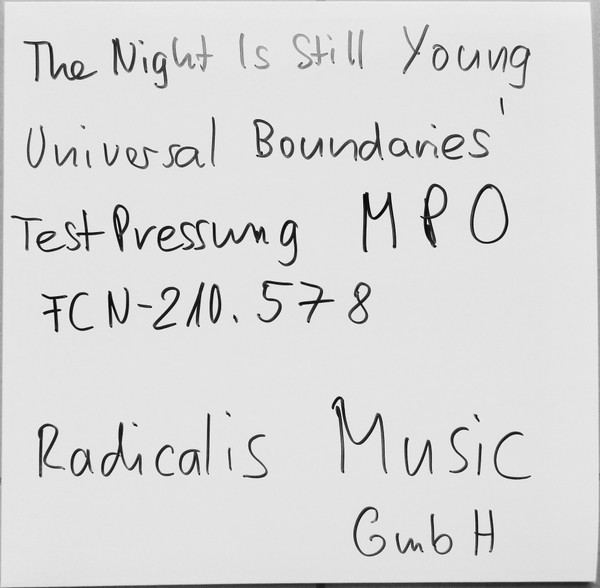 The Night Is Still Young
Universal Boundaries'
TestPressung MPO
FCN-210.578
Radicalis Music
GmbH